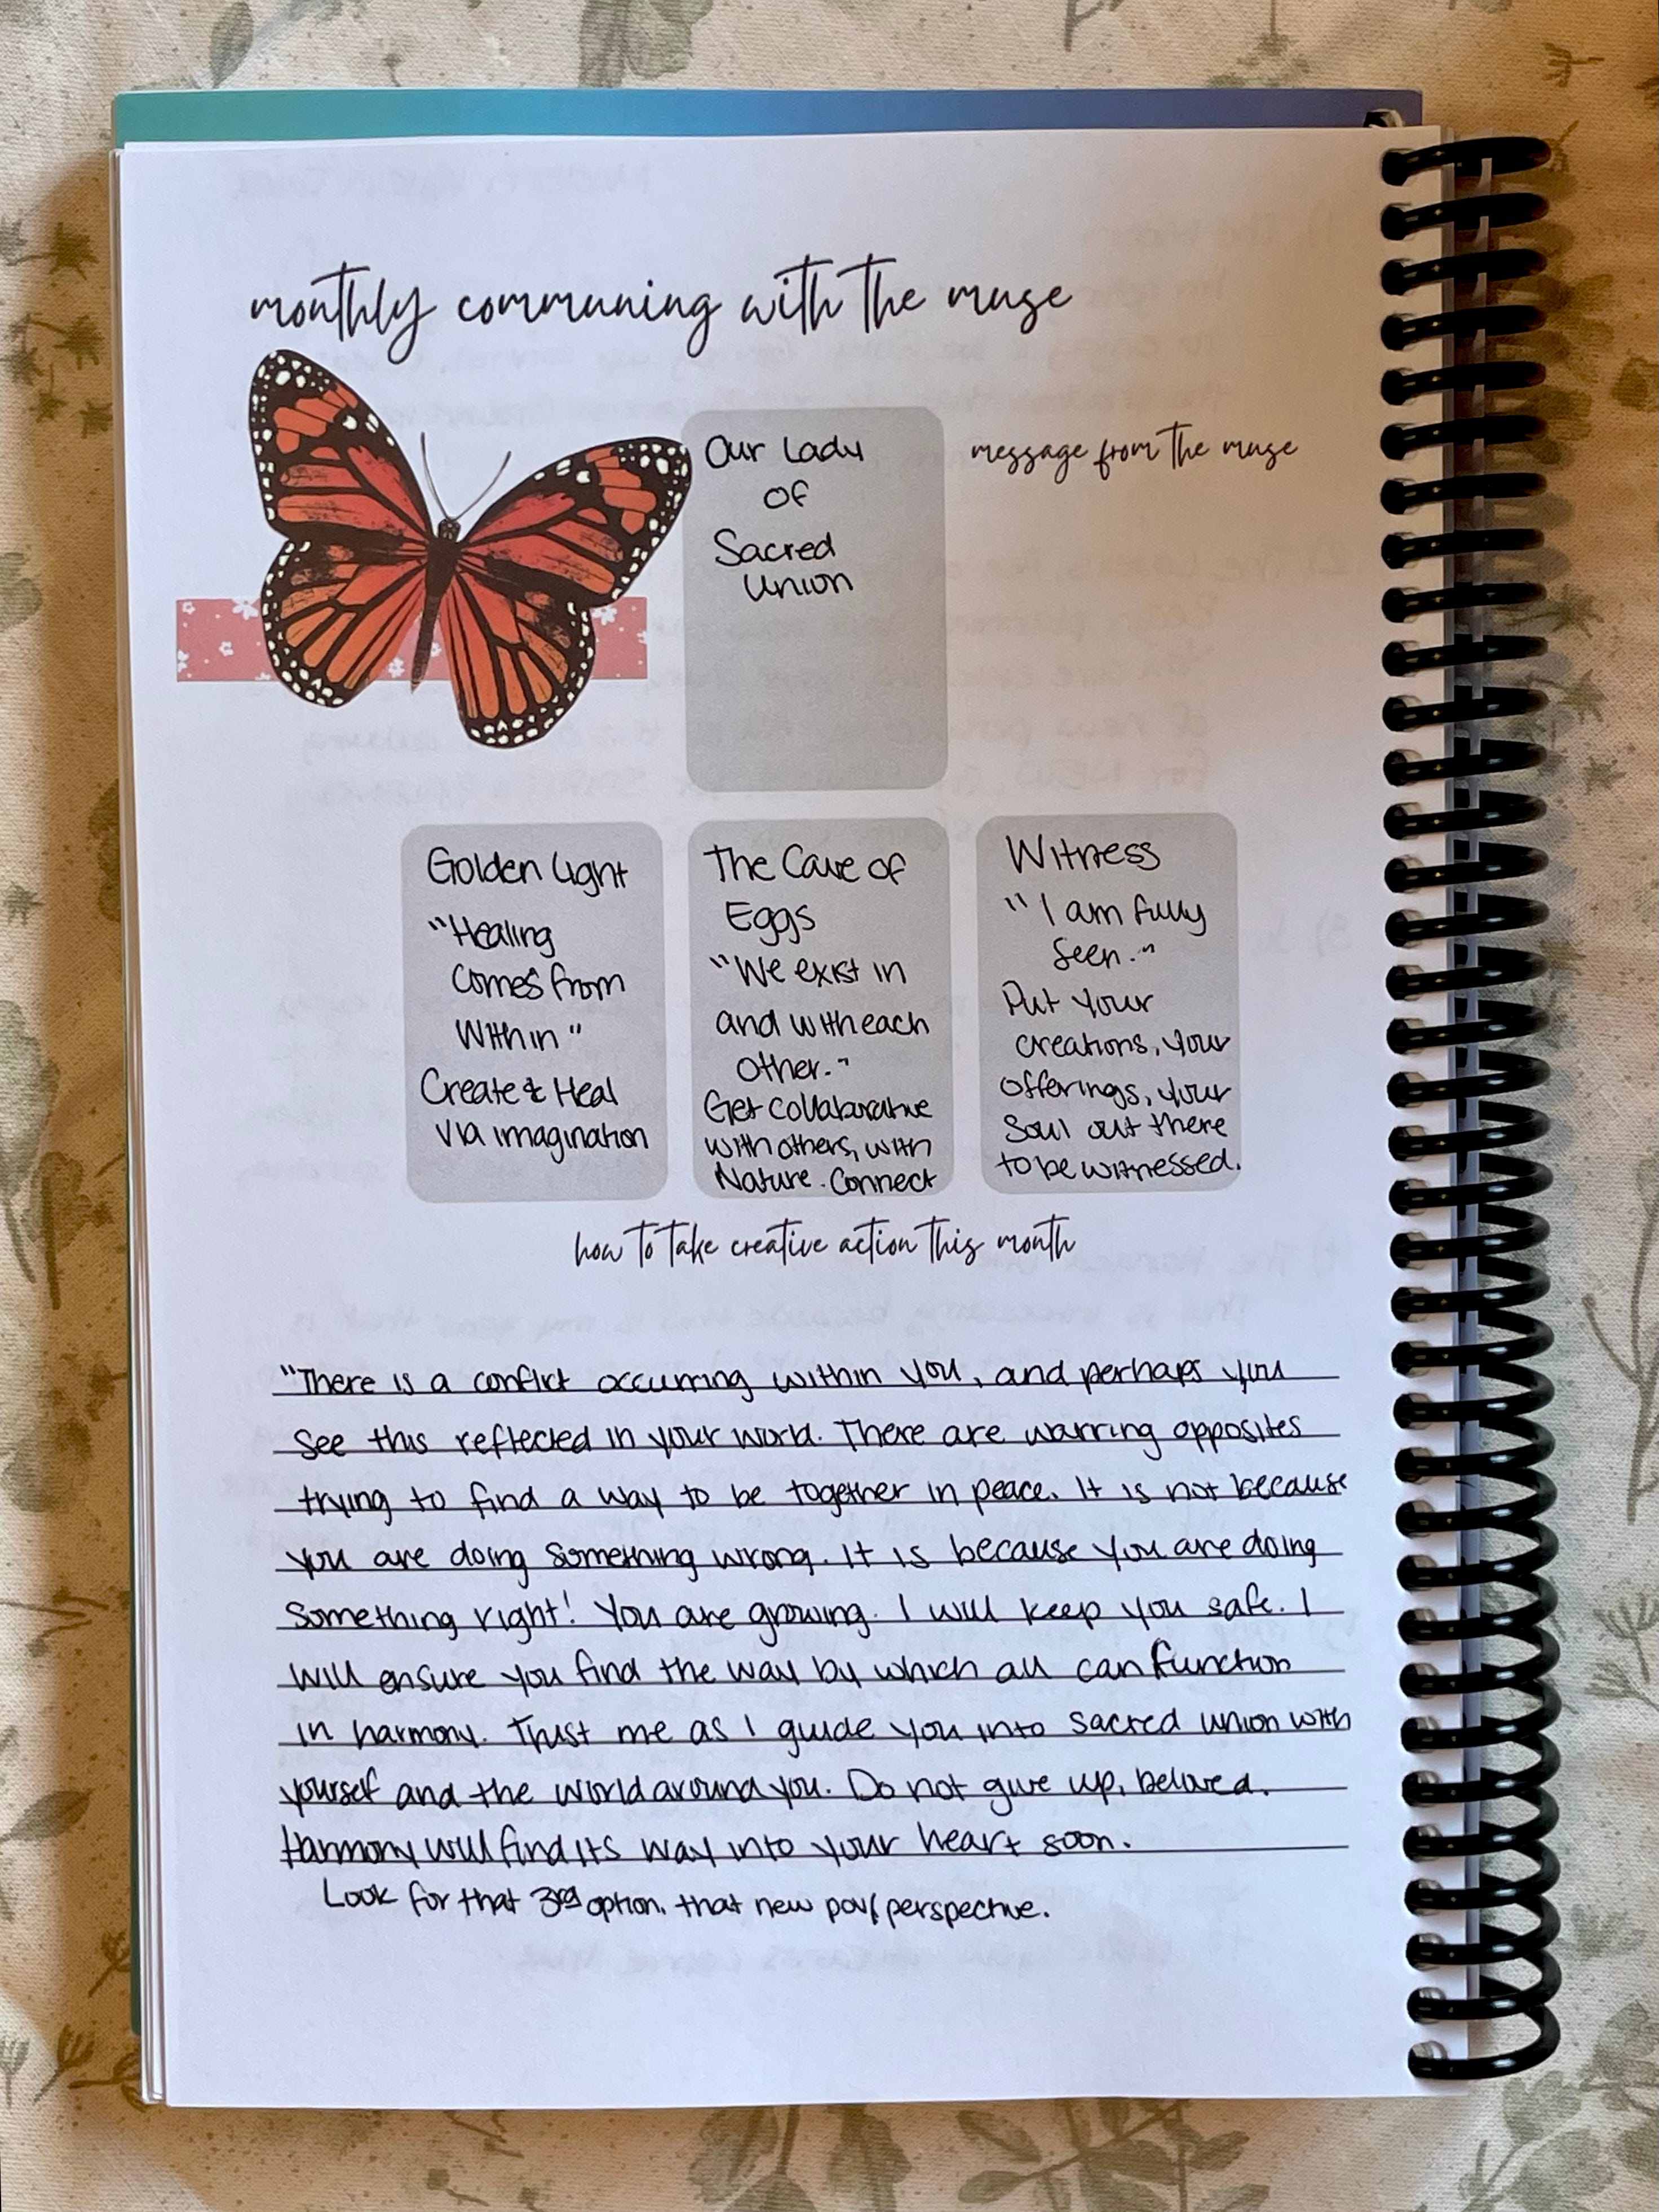 monthly communing with the muse
Our Lady
of
Sacred
Union
message from the muse
Golden Light
"Healing
Comes from
Within"
Create & Heal
via imagination
The Cave of
Eggs
"We exist in
and with each
other."
Get collaborative
with others, with
Nature. Connect
Witness
"I am fully
seen."
Put your
creations, your
offerings, your
soul out there
to be witnessed.
how to take creative action this month
"There is a conflict occurring within you, and perhaps you
see this reflected in your world. There are warring opposites
trying to find a way to be together in peace. It is not because
you are doing something wrong. It is because you are doing
something right! You are growing. I will keep you safe. I
will ensure you find the way by which all can function
in harmony. Trust me as I guide you into sacred union with
yourself and the world around you. Do not give up, beloved.
Harmony will find its way into your heart soon.
Look for that 3rd option, that new pov/perspective.